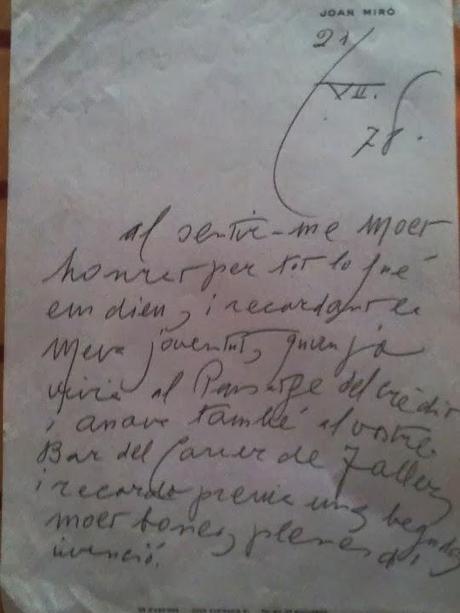 JOAN MIRÓ
21/
XII.
78.
al sentir-me molt
honrat per tot lo que
em dieu, i recordant la
meva joventut, quan jo
vivia al Passatge del Crèdit
i anava també al vostre
Bar del Carrer de Tallers
i recordo prenia unes begudes
molt bones, plenes d'
invenció.